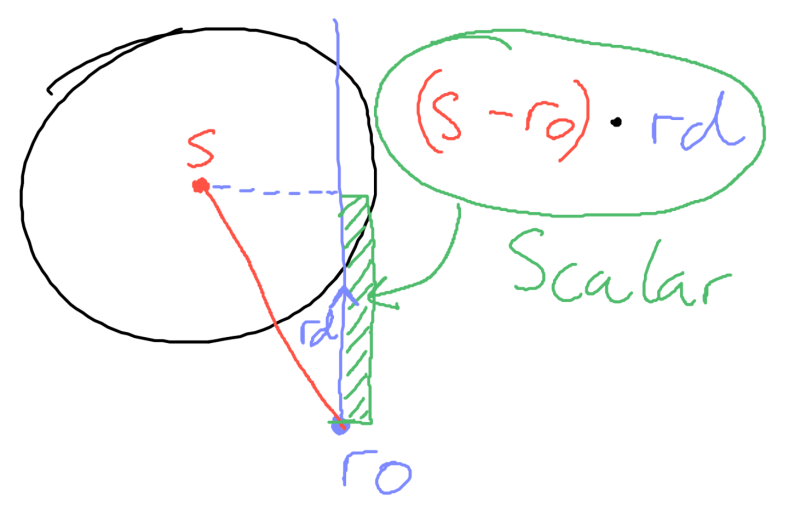 (S - ro) · rd
S
Scalar
rd
ro